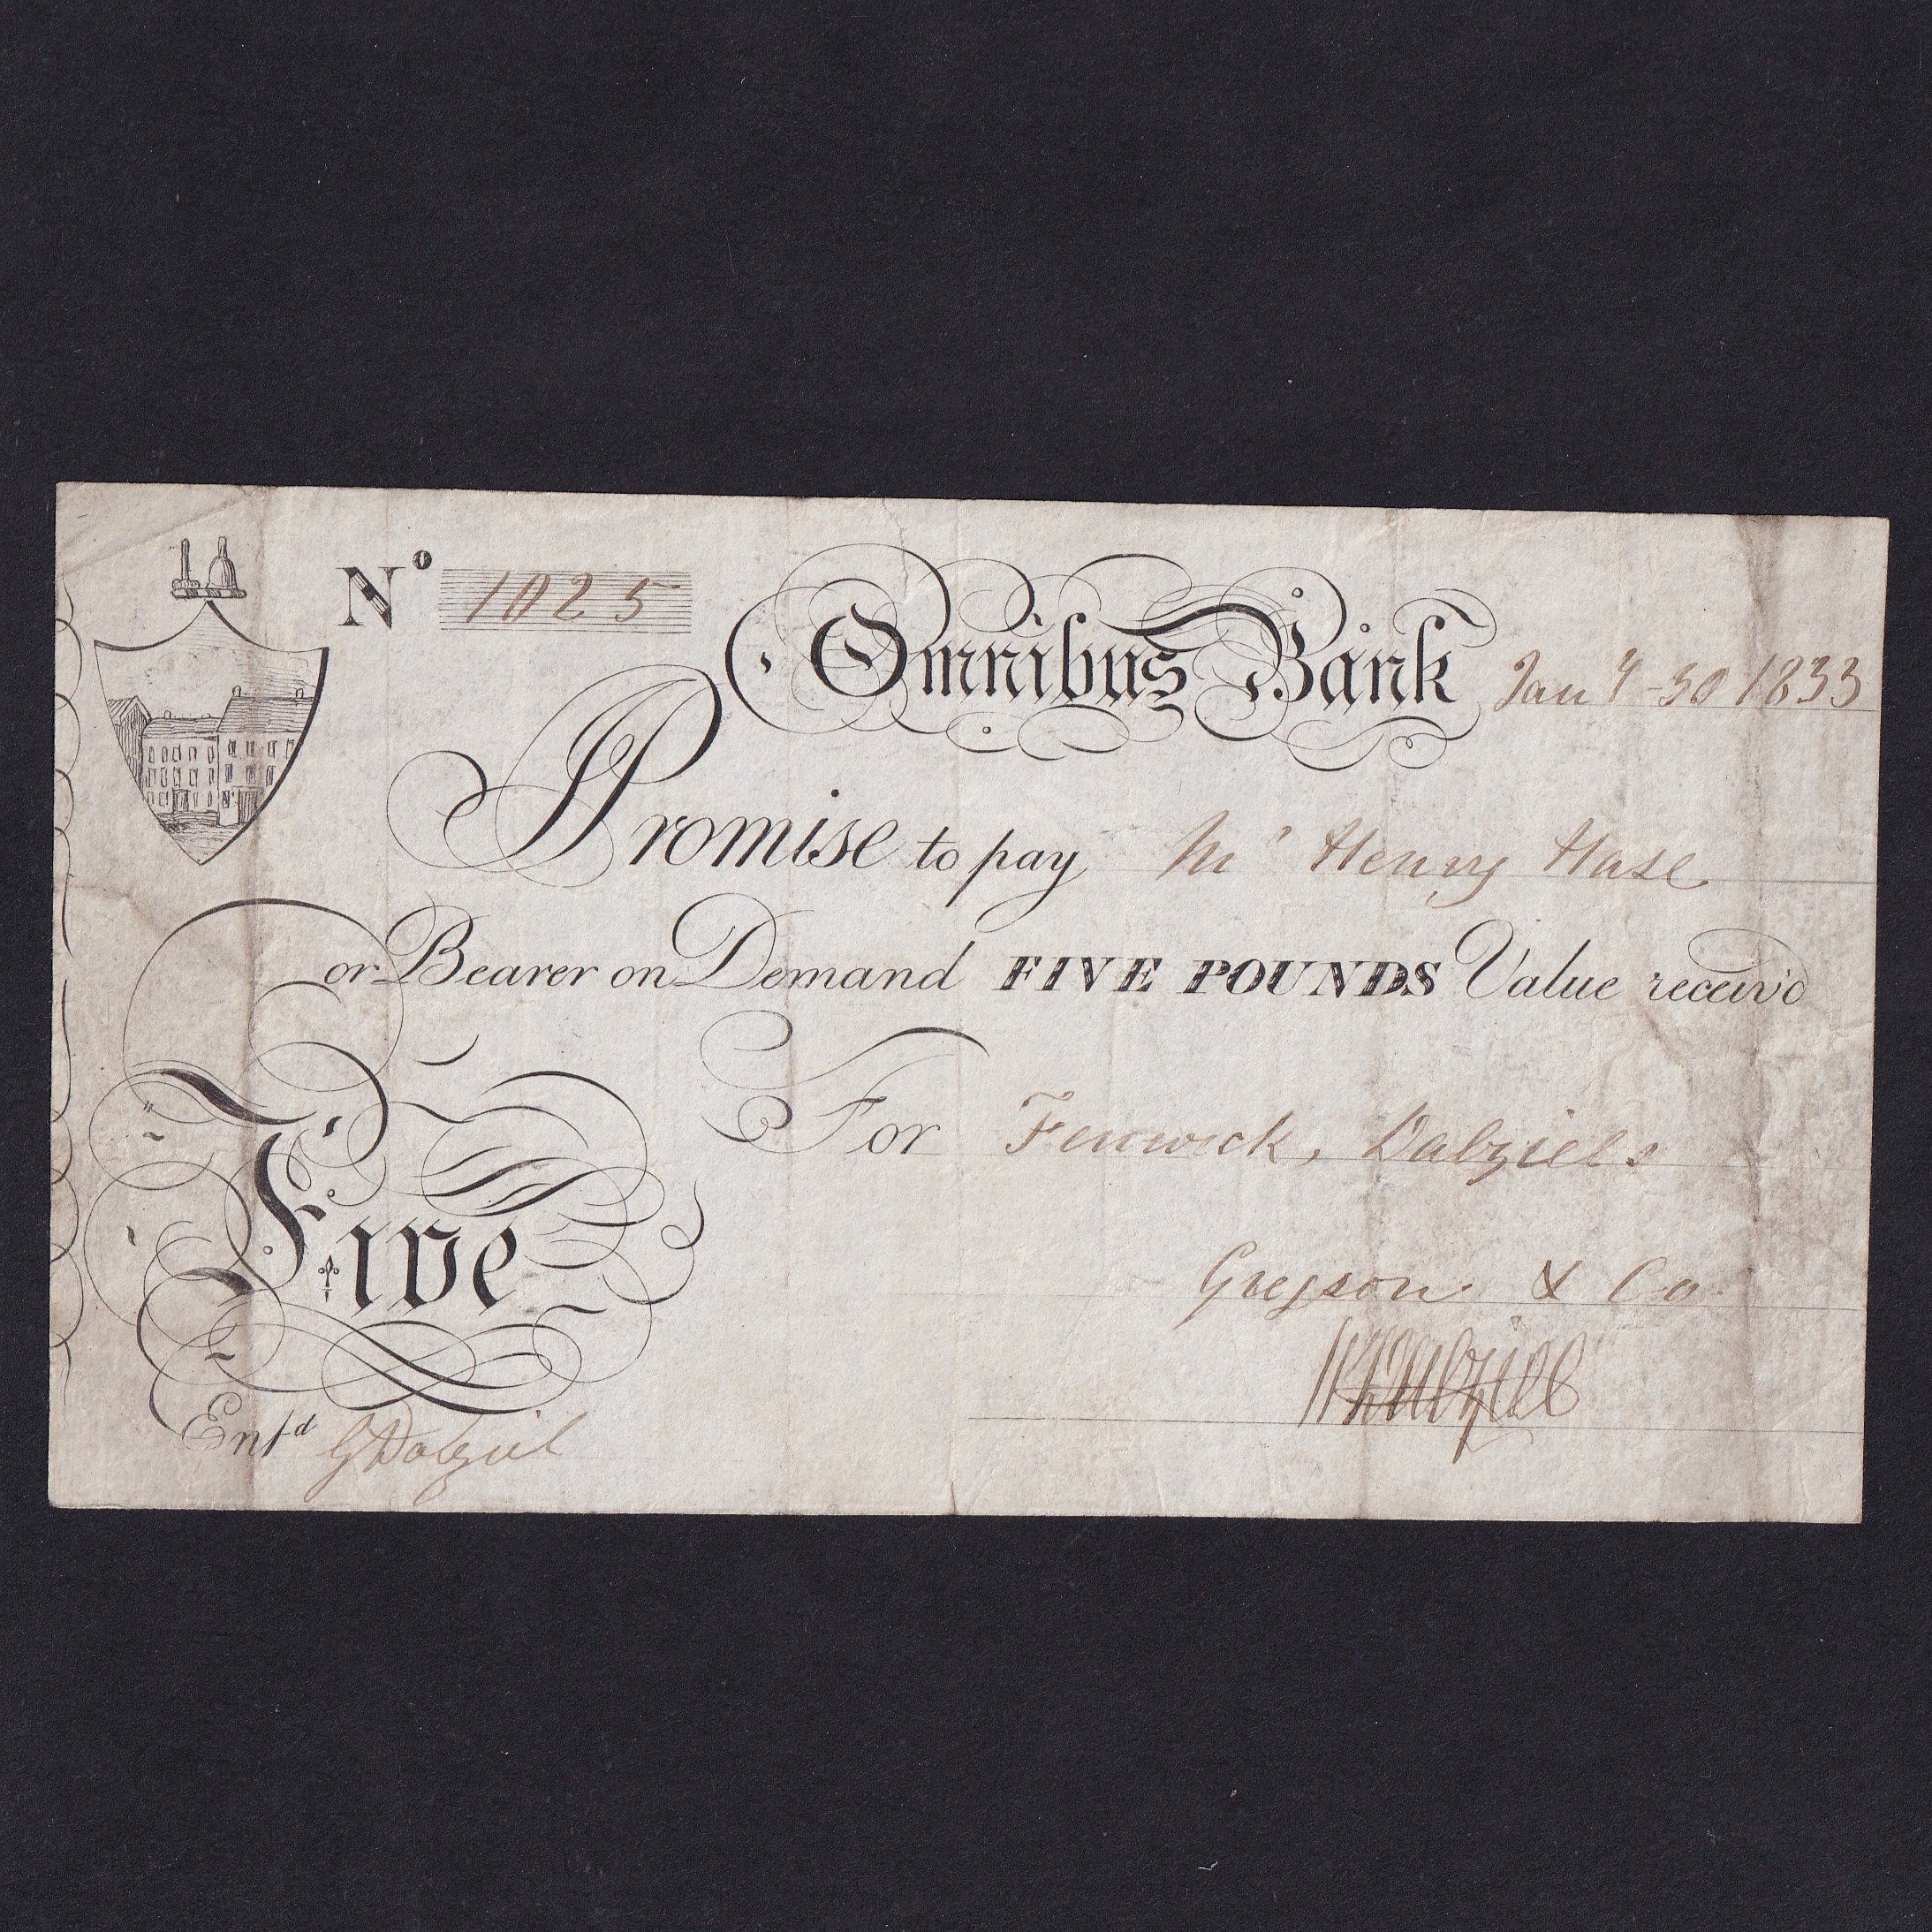 Nº 1025
Omnibus Bank Jan y 30 1833
I Promise to pay Mr Henry Hase
or Bearer on Demand FIVE POUNDS Value receiv'd
For Fenwick, Dalziels
Gregson & Co
Five
Entd G Dalziel